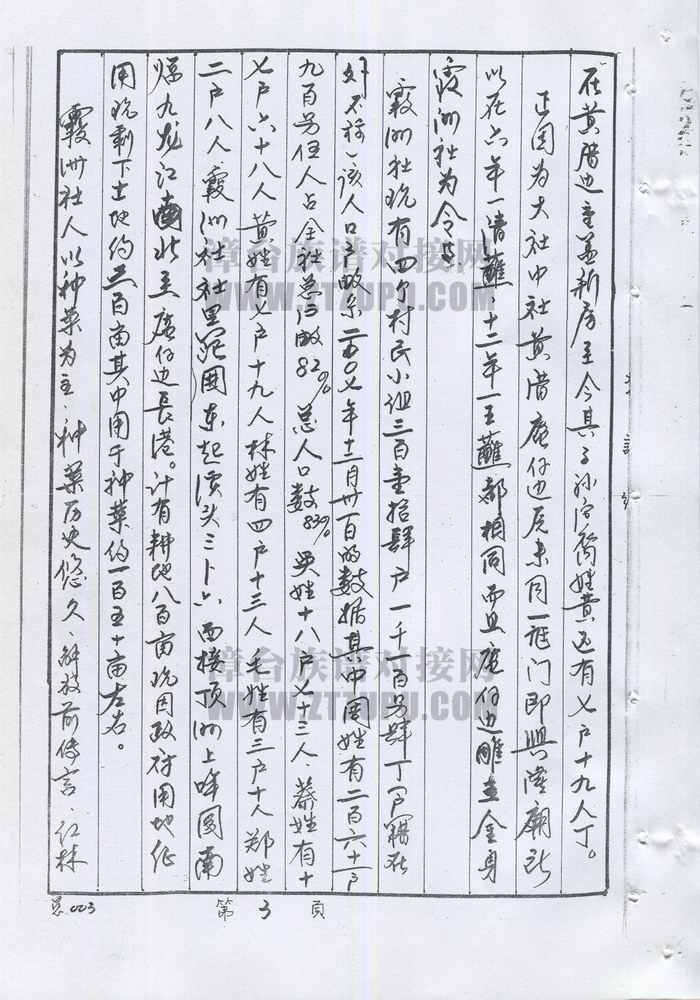 在黄厝边重盖新房至今其子孙后裔姓黄还有七户十九人丁。
正因为大社中社黄厝庵仔边历来同一祖门即兴隆庙所
以在六年一清醮、十二年一王醮都相同而且庵仔边雕立金身
霞洲社为令
霞洲社现有四个村民小组三百壹拾肆户一千一百另肆丁（户籍在
外不称）该人口户数系二〇〇七年十二月卅一日的数据其中周姓有二百六十一户
九百另伍人占全社总户数82%总人口数83%吴姓十八户七十三人、蔡姓有十
七户六十八人黄姓有七户十九人林姓有四户十三人毛姓有三户十人郑姓
二户八人霞洲社社里范围东起浸头三十六西接顶洲上峰园南
濒九龙江南北至庵仔边长港。计有耕地八百亩现因政府用地征
用现剩下土地约三百亩其中用于种菜约一百五十亩左右。
霞洲社人以种菜为主、种菜历史悠久、解放前传言、红林
总003
第 3 页
漳台族谱对接网
WWW.ZTZUPU.COM
漳台族谱对接网
WWW.ZTZUPU.COM